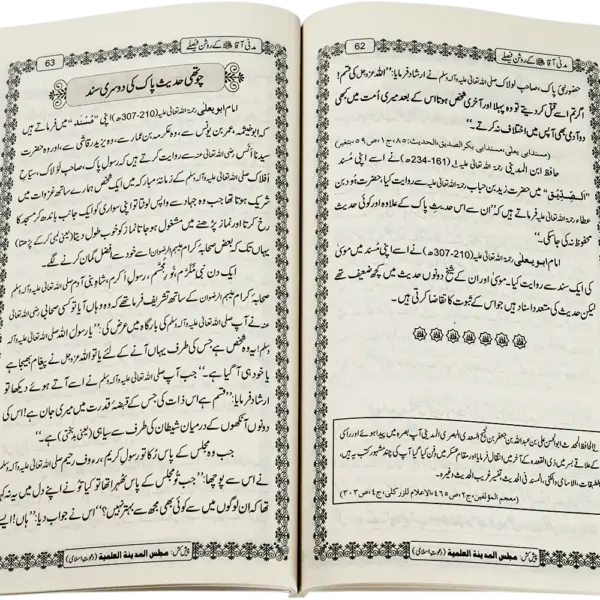 مدنی آقا ﷺ کے روشن فیصلے
62
حضور نبیٔ پاک، صاحبِ لولاک صلی اللہ تعالیٰ علیہ وآلہ وسلم نے ارشاد فرمایا: ”اللہ عزوجل کی قسم!
اگر تم اسے قتل کر دیتے تو وہ پہلا اور آخری شخص ہوتا اس کے بعد میری اُمت میں کبھی
دو آدمی بھی آپس میں اختلاف نہ کرتے۔“
(مسند ابی یعلی، مسند ابی بکر الصدیق، الحدیث: ۸۵، ج۱، ص۵۹، بتغیر)
حافظ ابن المدینی رحمۃ اللہ تعالیٰ علیہ (161-234ھ) نے اسے اپنی مُسند
میں حضرت زید بن حباب رحمۃ اللہ تعالیٰ علیہ سے روایت کیا، حضرت ہود بن
عطاء رحمۃ اللہ تعالیٰ علیہ فرماتے ہیں کہ ”ان سے اس حدیثِ پاک کے علاوہ اور کوئی حدیث
محفوظ نہ کی جا سکی۔“
امام ابو یعلی رحمۃ اللہ تعالیٰ علیہ (210-307ھ) نے اسے اپنی مُسند میں موسیٰ
کی ایک سند سے روایت کیا۔ موسیٰ اور ان کے شیخ دونوں حدیث میں کچھ ضعیف تھے
لیکن حدیث کی متعدد اسناد ہیں جو اس کے ثبوت کا تقاضا کرتی ہیں۔
الحافظ المحدث ابو الحسن علی بن عبداللہ بن جعفر بن نجیح السعدی البصری المدینی آپ بصرہ میں پیدا ہوئے اور
(معجم المؤلفین، ج۲، ص۴۶۵، الاعلام للزرکلی، ج۴، ص۳۰۳)
پیش کش: مجلس المدینۃ العلمیۃ (دعوتِ اسلامی)
مدنی آقا ﷺ کے روشن فیصلے
63
چوتھی حدیثِ پاک کی دوسری سند
امام ابو یعلی رحمۃ اللہ تعالیٰ علیہ (210-307ھ) اپنی ”مُسْنَد“ میں فرماتے ہیں
کہ ابو خیثمہ، عمر بن یونس سے، وہ عکرمہ بن عمار سے، وہ یزید رقاشی سے، اور وہ حضرت
سیدنا انس رضی اللہ تعالیٰ عنہ سے روایت کرتے ہیں کہ رسولِ پاک، صاحبِ لولاک، سیاحِ
افلاک صلی اللہ تعالیٰ علیہ وآلہ وسلم کے زمانۂ مبارکہ میں ایک شخص ہمارے ساتھ غزوات میں
شریک ہوتا تھا جب وہ جہاد سے واپس لوٹتا تو اپنی سواری کو ایک جانب باندھ کر مسجد کا
رخ کرتا اور نماز پڑھنے میں مشغول ہو جاتا نماز کو خوب طول دیتا (یعنی لمبی کر کے پڑھتا)
یہاں تک کہ بعض صحابہ کرام علیہم الرضوان اسے خود سے افضل گمان کرنے لگے۔
ایک دن نبیٔ مُکَرَّم، نورِ مجسَّم، رسولِ اکرم، شاہِ بنی آدم صلی اللہ تعالیٰ علیہ وآلہ وسلم
صحابہ کرام علیہم الرضوان کے ساتھ تشریف فرما تھے کہ وہ وہاں آیا تو کسی صحابی رضی اللہ تعالیٰ
عنہ نے آپ صلی اللہ تعالیٰ علیہ وآلہ وسلم کی بارگاہ میں عرض کی: ”یا رسول اللہ صلی اللہ تعالیٰ علیہ وآلہ
وسلم! یہ وہ شخص ہے جس کی طرف یہاں آنے کے لئے یا تو اللہ عزوجل نے پیغام بھیجا ہے
یا خود ہی آ گیا ہے۔“ جب آپ صلی اللہ تعالیٰ علیہ وآلہ وسلم نے اسے آتے ہوئے دیکھا تو
ارشاد فرمایا: ”قسم ہے اس ذات کی جس کے قبضۂ قدرت میں میری جان ہے! اس کی
دونوں آنکھوں کے درمیان شیطان کی طرف سے سیاہی (یعنی بدبختی) ہے۔“
جب وہ مجلس کے پاس رُکا تو رسولِ کریم، رءوف رحیم صلی اللہ تعالیٰ علیہ وآلہ وسلم
نے اس سے پوچھا: ”جب تُو مجلس کے پاس ٹھہرا تھا تو کیا تُو نے اپنے دل میں یہ نہ کہا
تھا کہ ان لوگوں میں سے کوئی بھی مجھ سے بہتر نہیں؟“ اس نے جواب دیا: ”ہاں! ایسے
پیش کش: مجلس المدینۃ العلمیۃ (دعوتِ اسلامی)